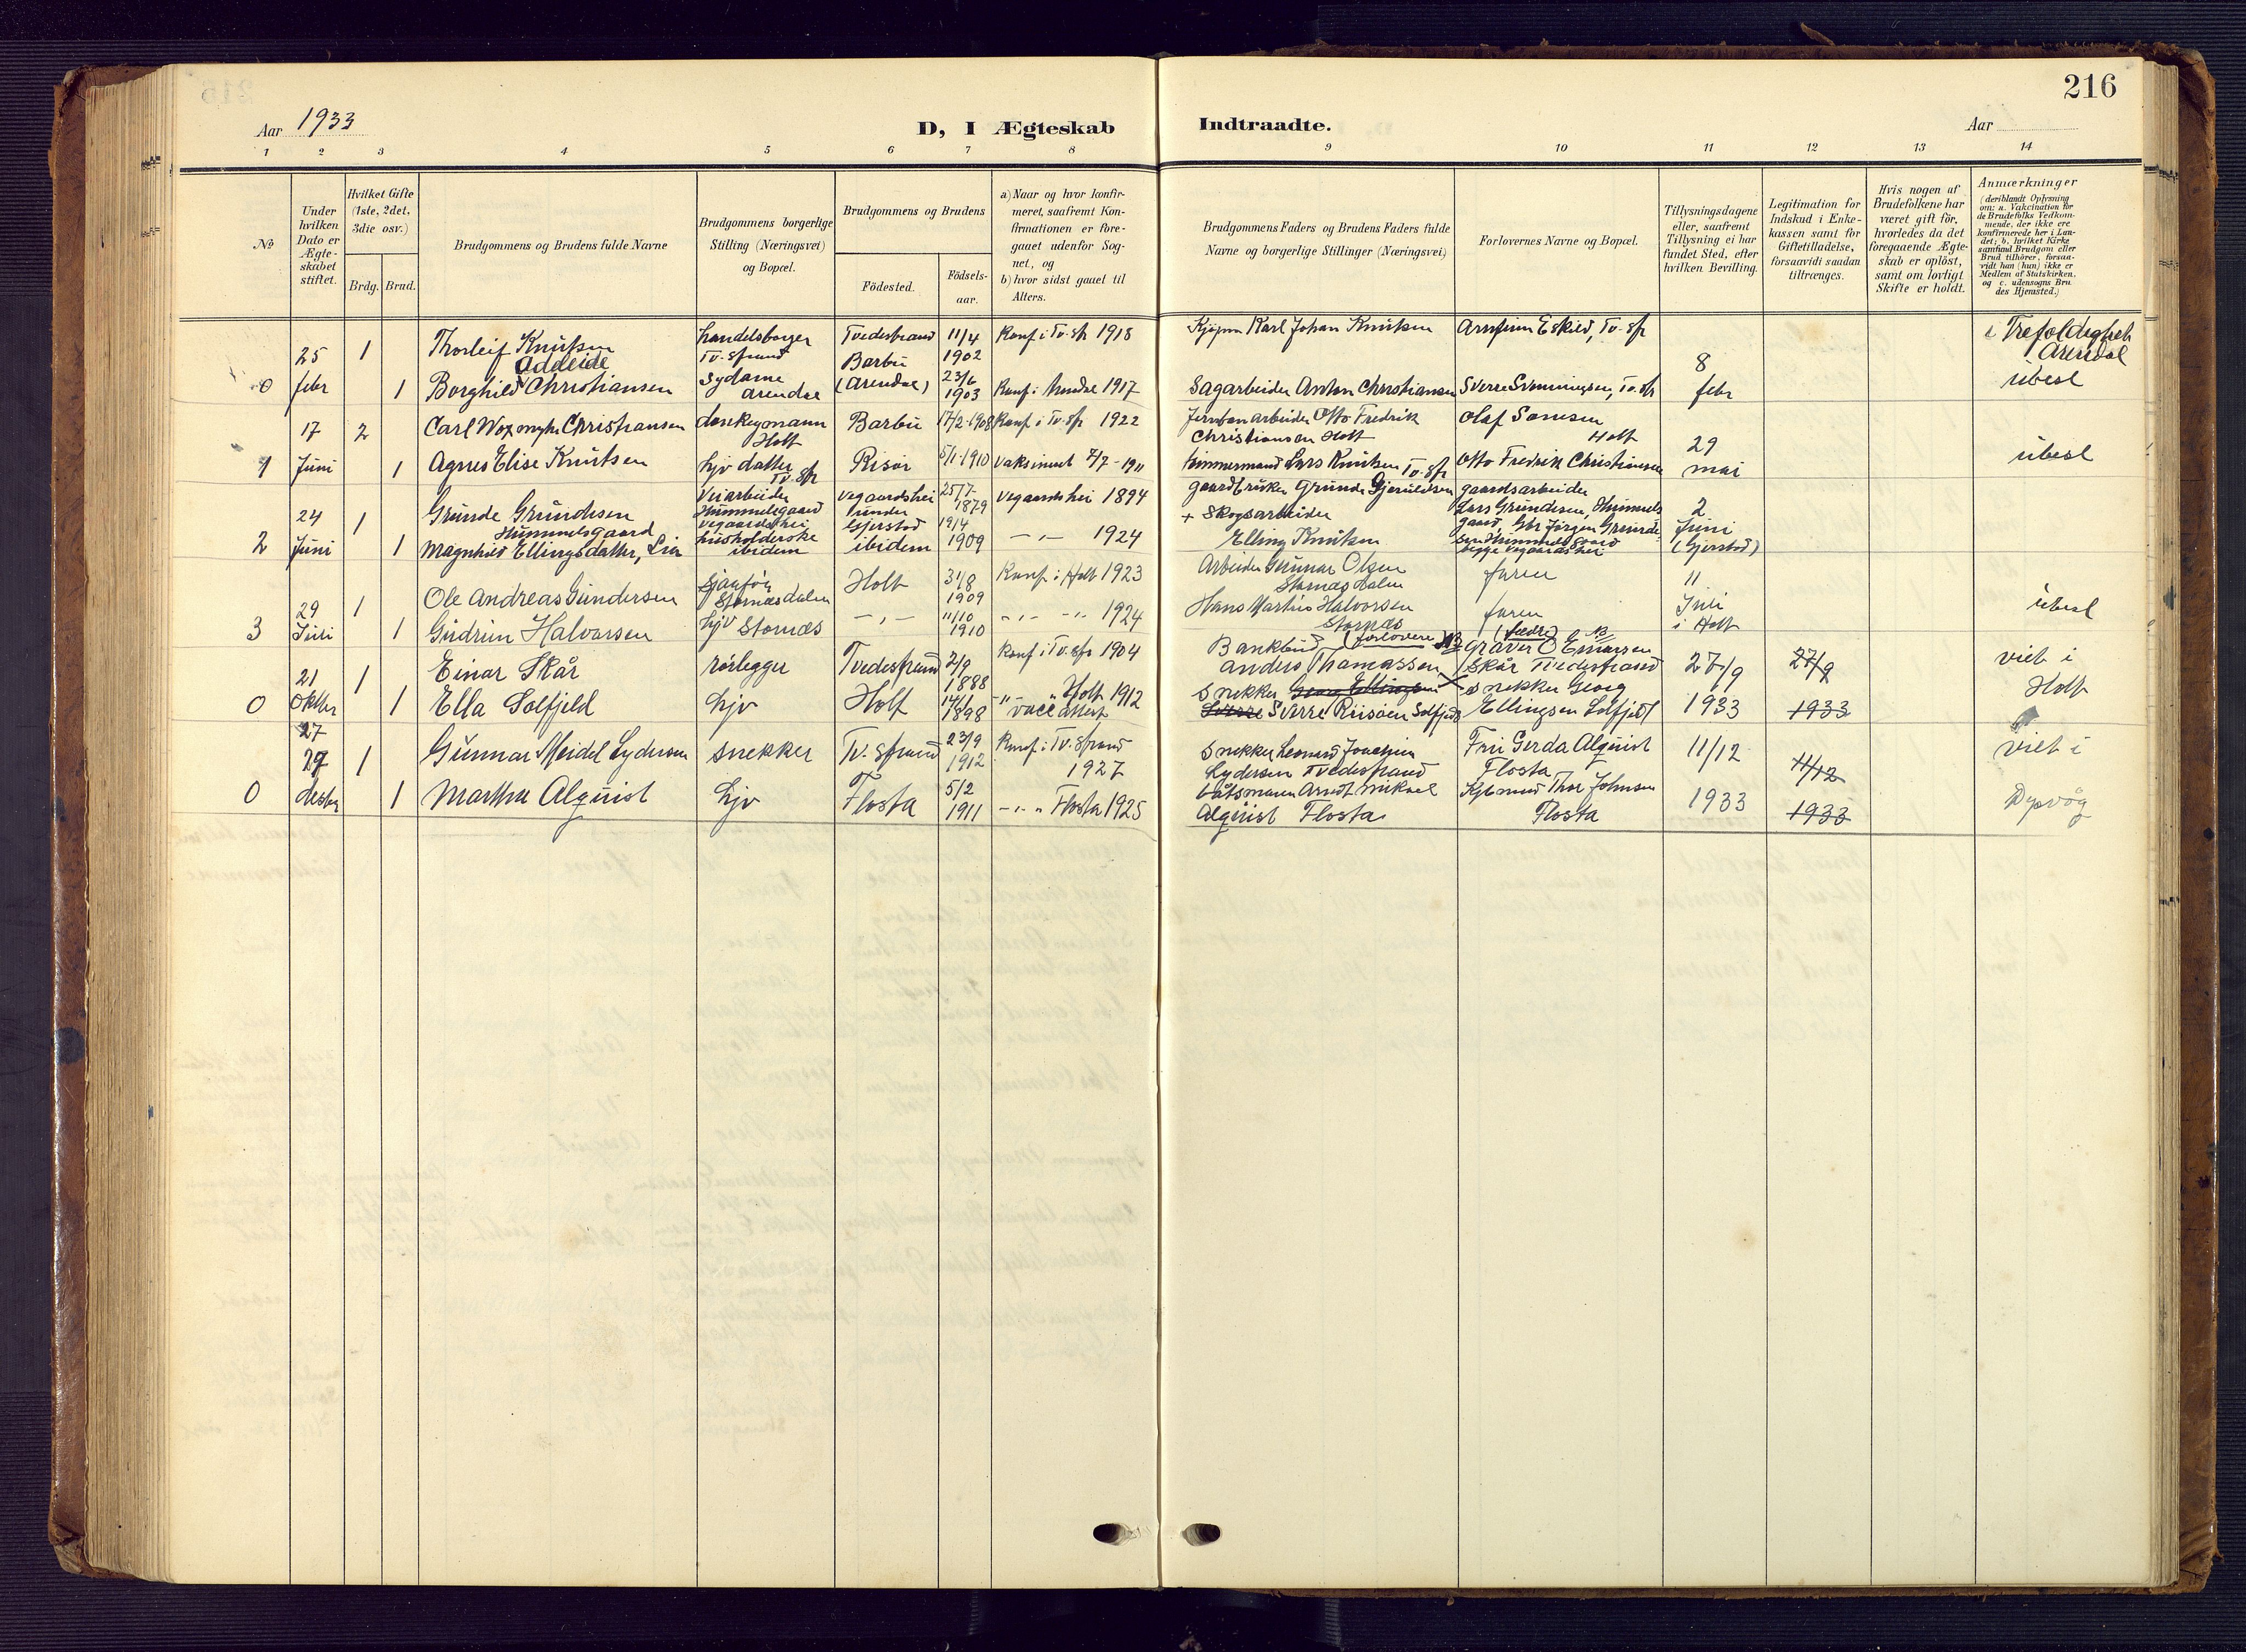 216
Aar 1933
D, I Ægteskab
Indtraadte.
Aar
1 2 3 4 5 6 7 8 9 10 11 12 13 14
No
Under hvilken Dato er Ægte-skabet stiftet.
Hvilket Gifte (1ste, 2det, 3die osv.)
Brdg. Brud.
Brudgommens og Brudens fulde Navne
Brudgommens borgerlige Stilling (Næringsvei) og Bopæl.
Brudgommens og Brudens
Födested.
Födsels-aar.
a) Naar og hvor konfir-meret, saafremt Kon-firmationen er fore-gaaet udenfor Sog-net, og
b) hvor sidst gaaet til Alters.
Brudgommens Faders og Brudens Faders fulde Navne og borgerlige Stillinger (Næringsvei)
Forlovernes Navne og Bopæl.
Tillysningsdagene eller, saafremt Tillysning ei har fundet Sted, efter hvilken Bevilling.
Legitimation for Indskud i Enke-kassen samt for Giftetilladelse, forsaavidt saadan tiltrænges.
Hvis nogen af Brudefolkene har været gift før, hvorledes da det foregaaende Ægte-skab er opløst, samt om lovligt Skifte er holdt.
Anmærkninger (deriblandt Oplysning om: a. Vakcination for de Brudefolks Vedkom-mende, der ikke ere konfirmerede her i Lan-det; b. hvilket Kirke-samfund Brudgom eller Brud tilhører, forsaa-vidt han (hun) ikke er Medlem af Statskirken, og c. udensogns Bru-des Hjemsted.)
0 25 febr 1 Thorleif Knutsen handelsborger Tv.strand Tvedestrand 11/4 1902 Konf i Tv.str 1918 Kjøpm Karl Johan Knutsen Arnfinn Eskild, Tv.str 8 febr i Trefoldighet Arendal
1 Borghild Addeide Christiansen Sydame Arendal Barbu (Arendal) 23/6 1903 Konf i Arendal 1917 Sagarbeider Anton Christiansen Sverre Svenningsen, Tv.str ubesl
1 17 Juni 2 Carl Christiansen Holt Barbu 17/2-1908 Konf i Tv.str 1922 Jernbanarbeider Otto Fredrik Christiansen Holt Olaf Holt 29 mai ubesl
1 Agnes Elise Knutsen hjv datter Tv.str Risør 5/11-1910 Vaksinert 7/7-1911 tømmermand Lars Knutsen Tv.str Otto Fredrik Christiansen
2 24 Juni 1 Grunde Grundesen Hummelsgaard Veiarbeider Hummelsgaard Vegaardshei Vegaardshei 25/7-1879 Vegaardshei 1894 gaardbruker Grunde Gjeruldsen gaardsarbeider Lars Grundesen, 2 Juni (Gjerstad)
1 Magnhild Ellingsdatter, Lia husholderske ibidem Gjerstad ibidem 19/4 1909 -"- 1924 + Skogsarbeider Elling Knutsen begge Vegaardshei
3 29 Juli 1 Ole Andreas Gundersen sjaufør Stornæsdalen Holt 31/8 1909 Konf i Holt 1923 Arbeider Gunnar Olsen Stornæsdalen faren 11 Juli i Holt ubesl
1 Gudrun Halvorsen hjv Stornæs -"- 11/10 1910 -"- 1924 Hans Martin Halvorsen Stornæs faren
0 21 Oktbr 1 Einar Skår rørlegger Tvedestrand 2/9 1888 Konf i Tv.str 1904 (forlovere) NB Bankbud Anders Thomassen (fædre) NB Graver O Emarsen Skår Tvedestrand 27/9 1933 27/9 1933 viet i Holt
1 Ella Solfjeld hjv Holt 14/1 1898 -"- Holt 1912 vacc attest Snekker Georg Ellingsen Sverre Sverre Riisøen Solfjeld Snekker Georg Ellingsen Solfjeld
0 27 27 desbr 1 Gunnar Meidel Lydersen snekker Tv.strand 23/9 1912 Konf i Tv.strand 1927 Snekker Leonard Joachim Lydersen Tvedestrand Fru Gerda Alquist Flosta 11/12 1933 11/12 1933 viet i Dypvåg
1 Martha Alquist hjv Flosta 5/2 1911 -"- Flosta 1925 båtsmann Arndt Mikael Alquist Flosta Thor Johnsen Flosta